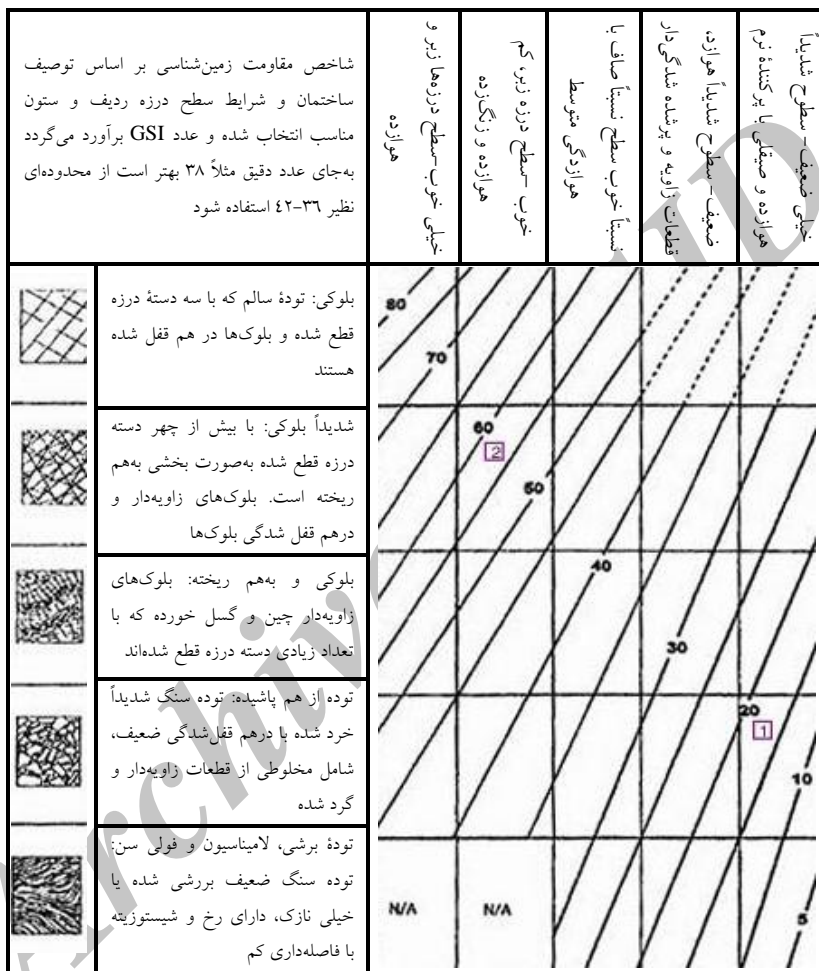 شاخص مقاومت زمین‌شناسی بر اساس توصیف
ساختمان و شرایط سطح درزه ردیف و ستون
مناسب انتخاب شده و عدد GSI برآورد می‌گردد
به‌جای عدد دقیق مثلاً ۳۸ بهتر است از محدوده‌ای
نظیر ۳۶-۴۲ استفاده شود
خیلی خوب-سطح درزه‌ها زبر و
هوازده
خوب -سطح درزه زبر، کم
هوازده و زنگ‌زده
نسبتاً خوب سطح نسبتاً صاف با
هوازدگی متوسط
ضعیف- سطوح شدیداً هوازده،
قطعات زاویه و پرشده شدگی‌دار
خیلی ضعیف- سطوح شدیداً
هوازده و صیقلی با پرکنندهٔ نرم
بلوکی: تودهٔ سالم که با سه دستهٔ درزه
قطع شده و بلوک‌ها در هم قفل شده
هستند
شدیداً بلوکی: با بیش از چهر دسته
درزه قطع شده به‌صورت بخشی به‌هم
ریخته است. بلوک‌های زاویه‌دار و
درهم قفل شدگی بلوک‌ها
بلوکی و به‌هم ریخته: بلوک‌های
زاویه‌دار چین و گسل خورده که با
تعداد زیادی دسته درزه قطع شده‌اند
توده از هم پاشیده: توده سنگ شدیداً
خرد شده با درهم قفل‌شدگی ضعیف،
شامل مخلوطی از قطعات زاویه‌دار و
گرد شده
تودهٔ برشی، لامیناسیون و فولی سن:
توده سنگ ضعیف بررشی شده یا
خیلی نازک، دارای رخ و شیستوزیته
با فاصله‌داری کم
80
70
60
2
50
40
30
20
1
10
N/A
N/A
5
Archive